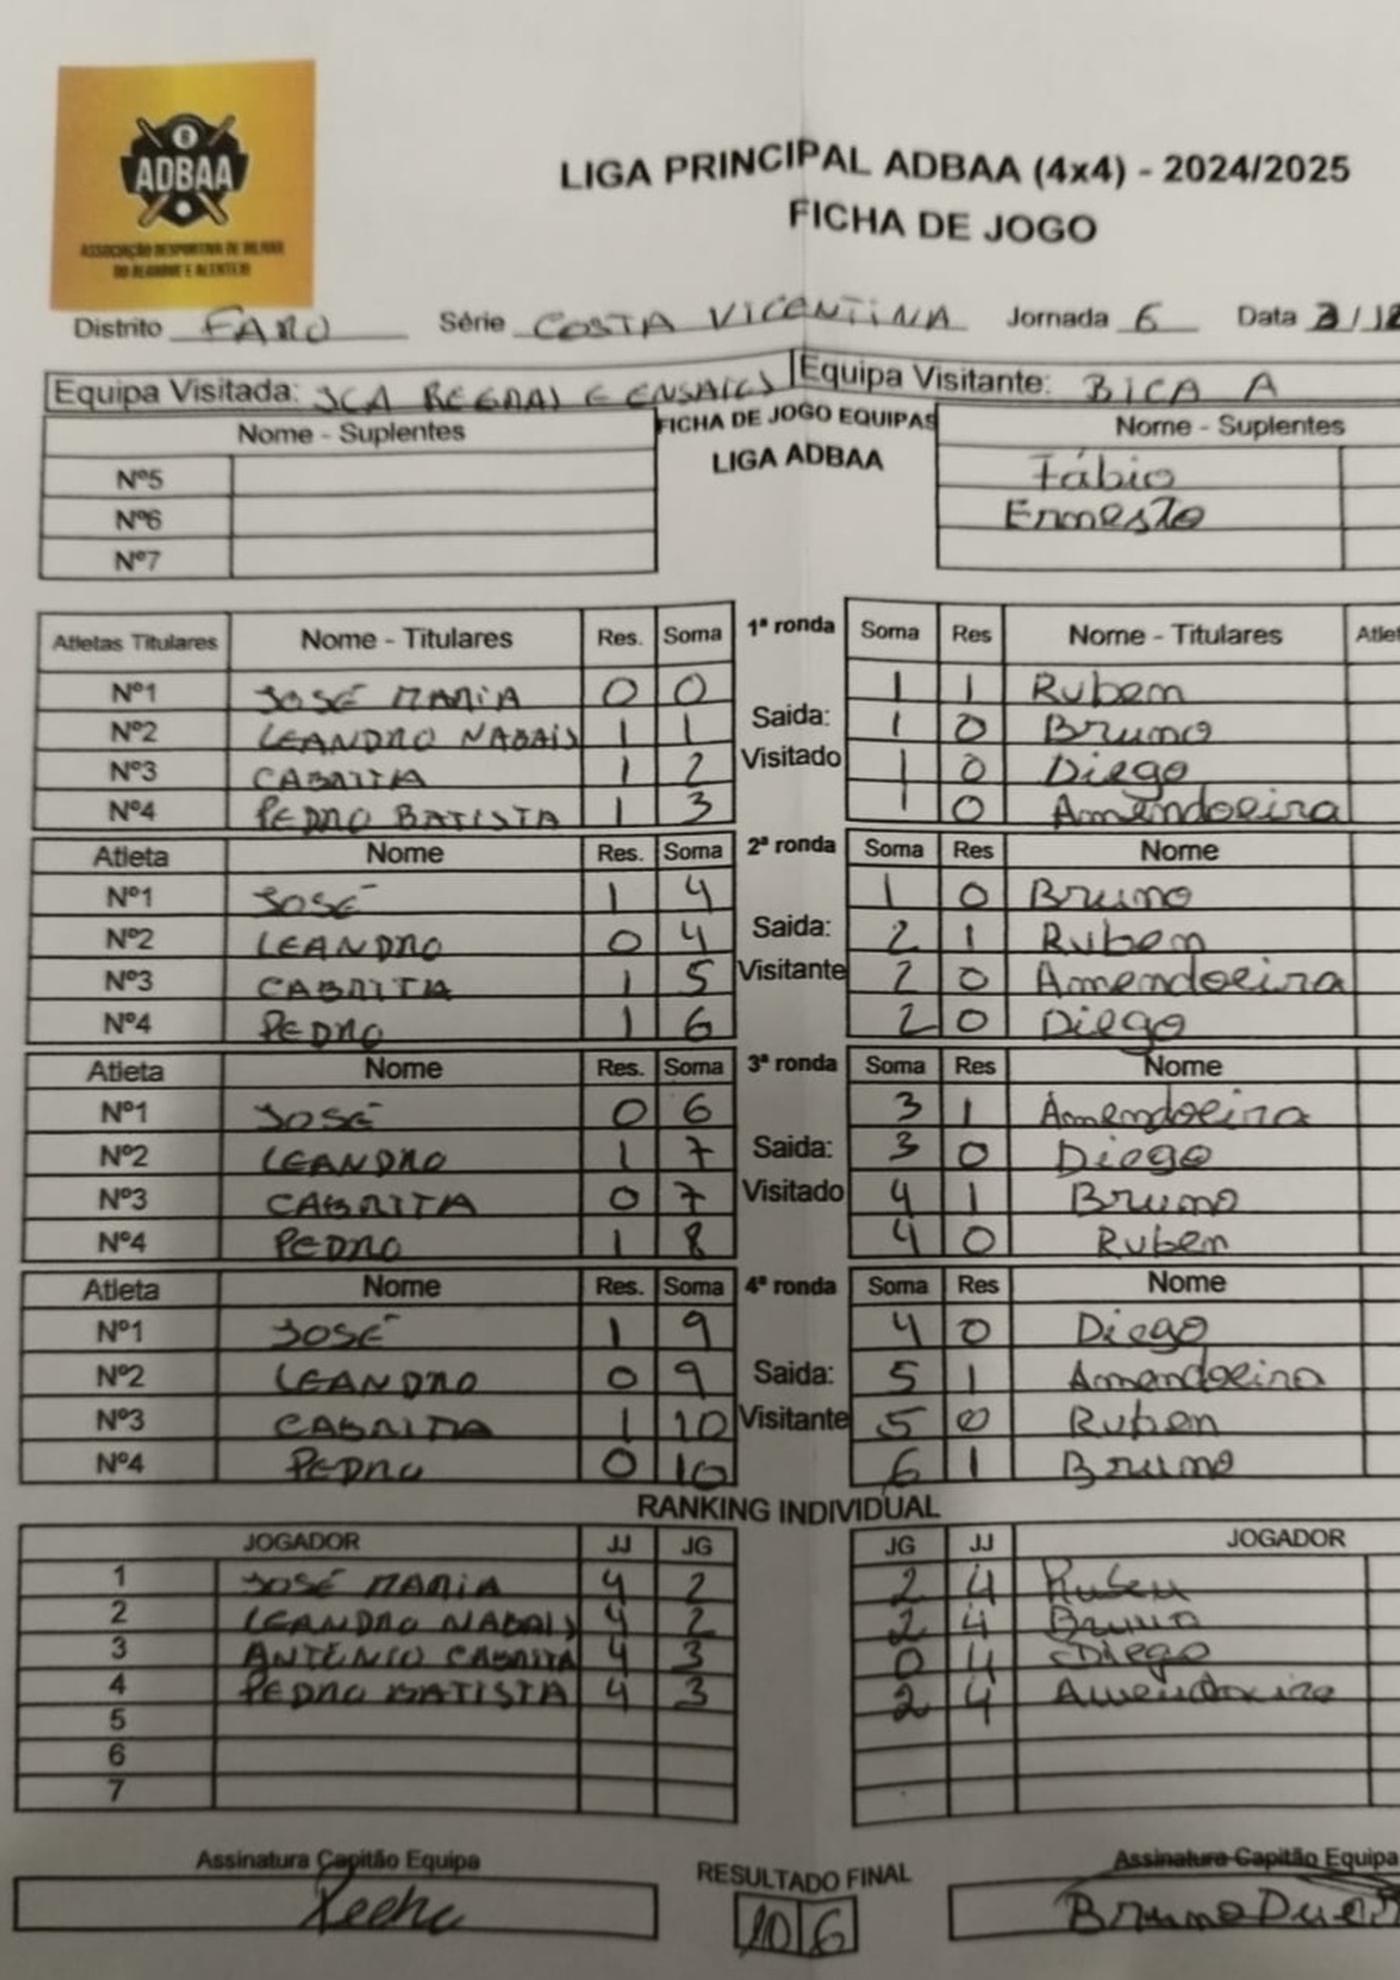 8
ADBAA
ASSOCIAÇÃO DESPORTIVA DE BILHAR
DO ALGARVE E ALENTEJO
LIGA PRINCIPAL ADBAA (4x4) - 2024/2025
FICHA DE JOGO
Distrito FARO Série COSTA VICENTINA Jornada 6 Data 3/12
Equipa Visitada: JCA REGDAS E ENSAIOS Equipa Visitante: BICA A
Nome - Suplentes FICHA DE JOGO EQUIPAS Nome - Suplentes
LIGA ADBAA
Nº5 Fábio
Nº6 Ernesto
Nº7
Atletas Titulares Nome - Titulares Res. Soma 1ª ronda Soma Res Nome - Titulares Atlet
Nº1 JOSÉ MARIA 0 0 1 1 Rubem
Saida:
Nº2 LEANDRO NABAIS 1 1 1 0 Bruno
Visitado
Nº3 CABRITA 1 2 1 0 Diego
Nº4 PEDRO BATISTA 1 3 1 0 Amendoeira
Atleta Nome Res. Soma 2ª ronda Soma Res Nome
Nº1 JOSÉ 1 4 1 0 Bruno
Saida:
Nº2 LEANDRO 0 4 2 1 Rubem
Visitante
Nº3 CABRITA 1 5 2 0 Amendoeira
Nº4 PEDRO 1 6 2 0 Diego
Atleta Nome Res. Soma 3ª ronda Soma Res Nome
Nº1 JOSÉ 0 6 3 1 Amendoeira
Saida:
Nº2 LEANDRO 1 7 3 0 Diego
Visitado
Nº3 CABRITA 0 7 4 1 Bruno
Nº4 PEDRO 1 8 4 0 Ruben
Atleta Nome Res. Soma 4ª ronda Soma Res Nome
Nº1 JOSÉ 1 9 4 0 Diego
Saida:
Nº2 LEANDRO 0 9 5 1 Amendoeira
Visitante
Nº3 CABRITA 1 10 5 0 Ruben
Nº4 PEDRO 0 10 6 1 Bruno
RANKING INDIVIDUAL
JOGADOR JJ JG JG JJ JOGADOR
1 JOSÉ MARIA 4 2 2 4 Ruben
2 LEANDRO NABAIS 4 2 2 4 Bruno
3 ANTÓNIO CABRITA 4 3 0 4 Diego
4 PEDRO BATISTA 4 3 2 4 Amendoeira
5
6
7
Assinatura Capitão Equipa RESULTADO FINAL Assinatura Capitão Equipa
10 6 Bruno